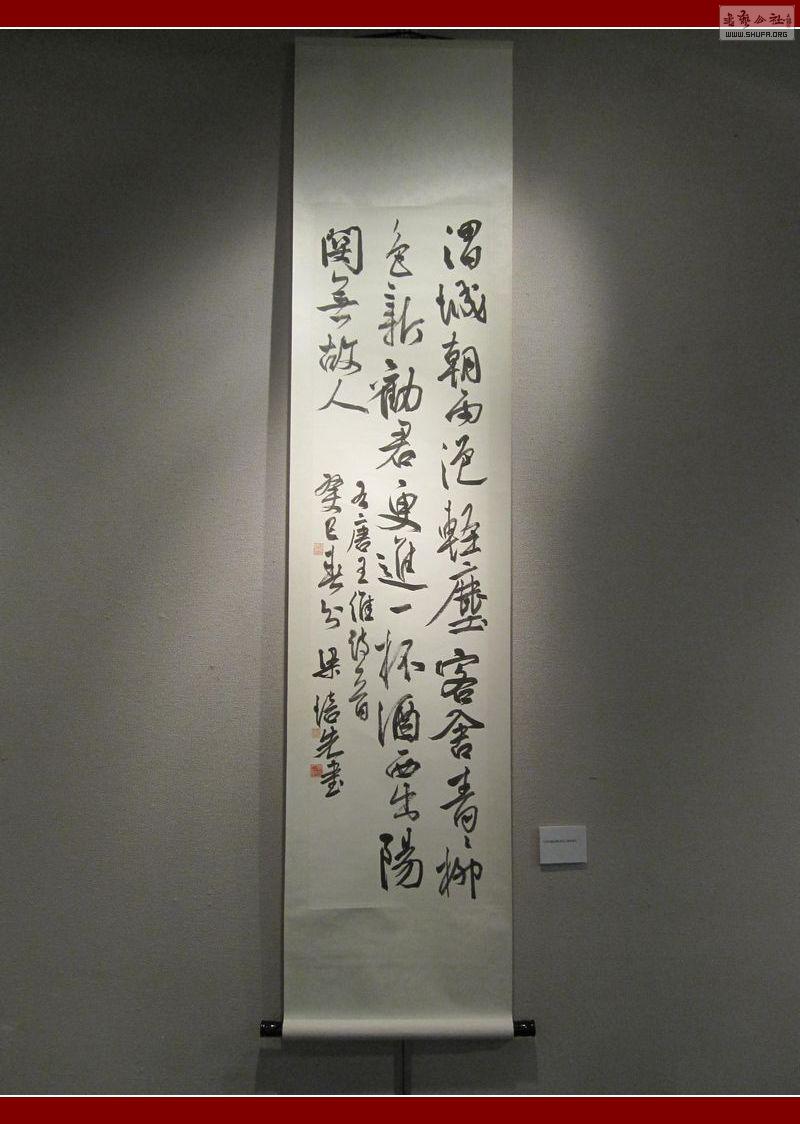 渭城朝雨浥輕塵客舍青々柳
色新勸君更進一杯酒西出陽
關無故人
右唐王維詩一首
癸巳春分 梁培先書
書藝公社
WWW.SHUFA.ORG